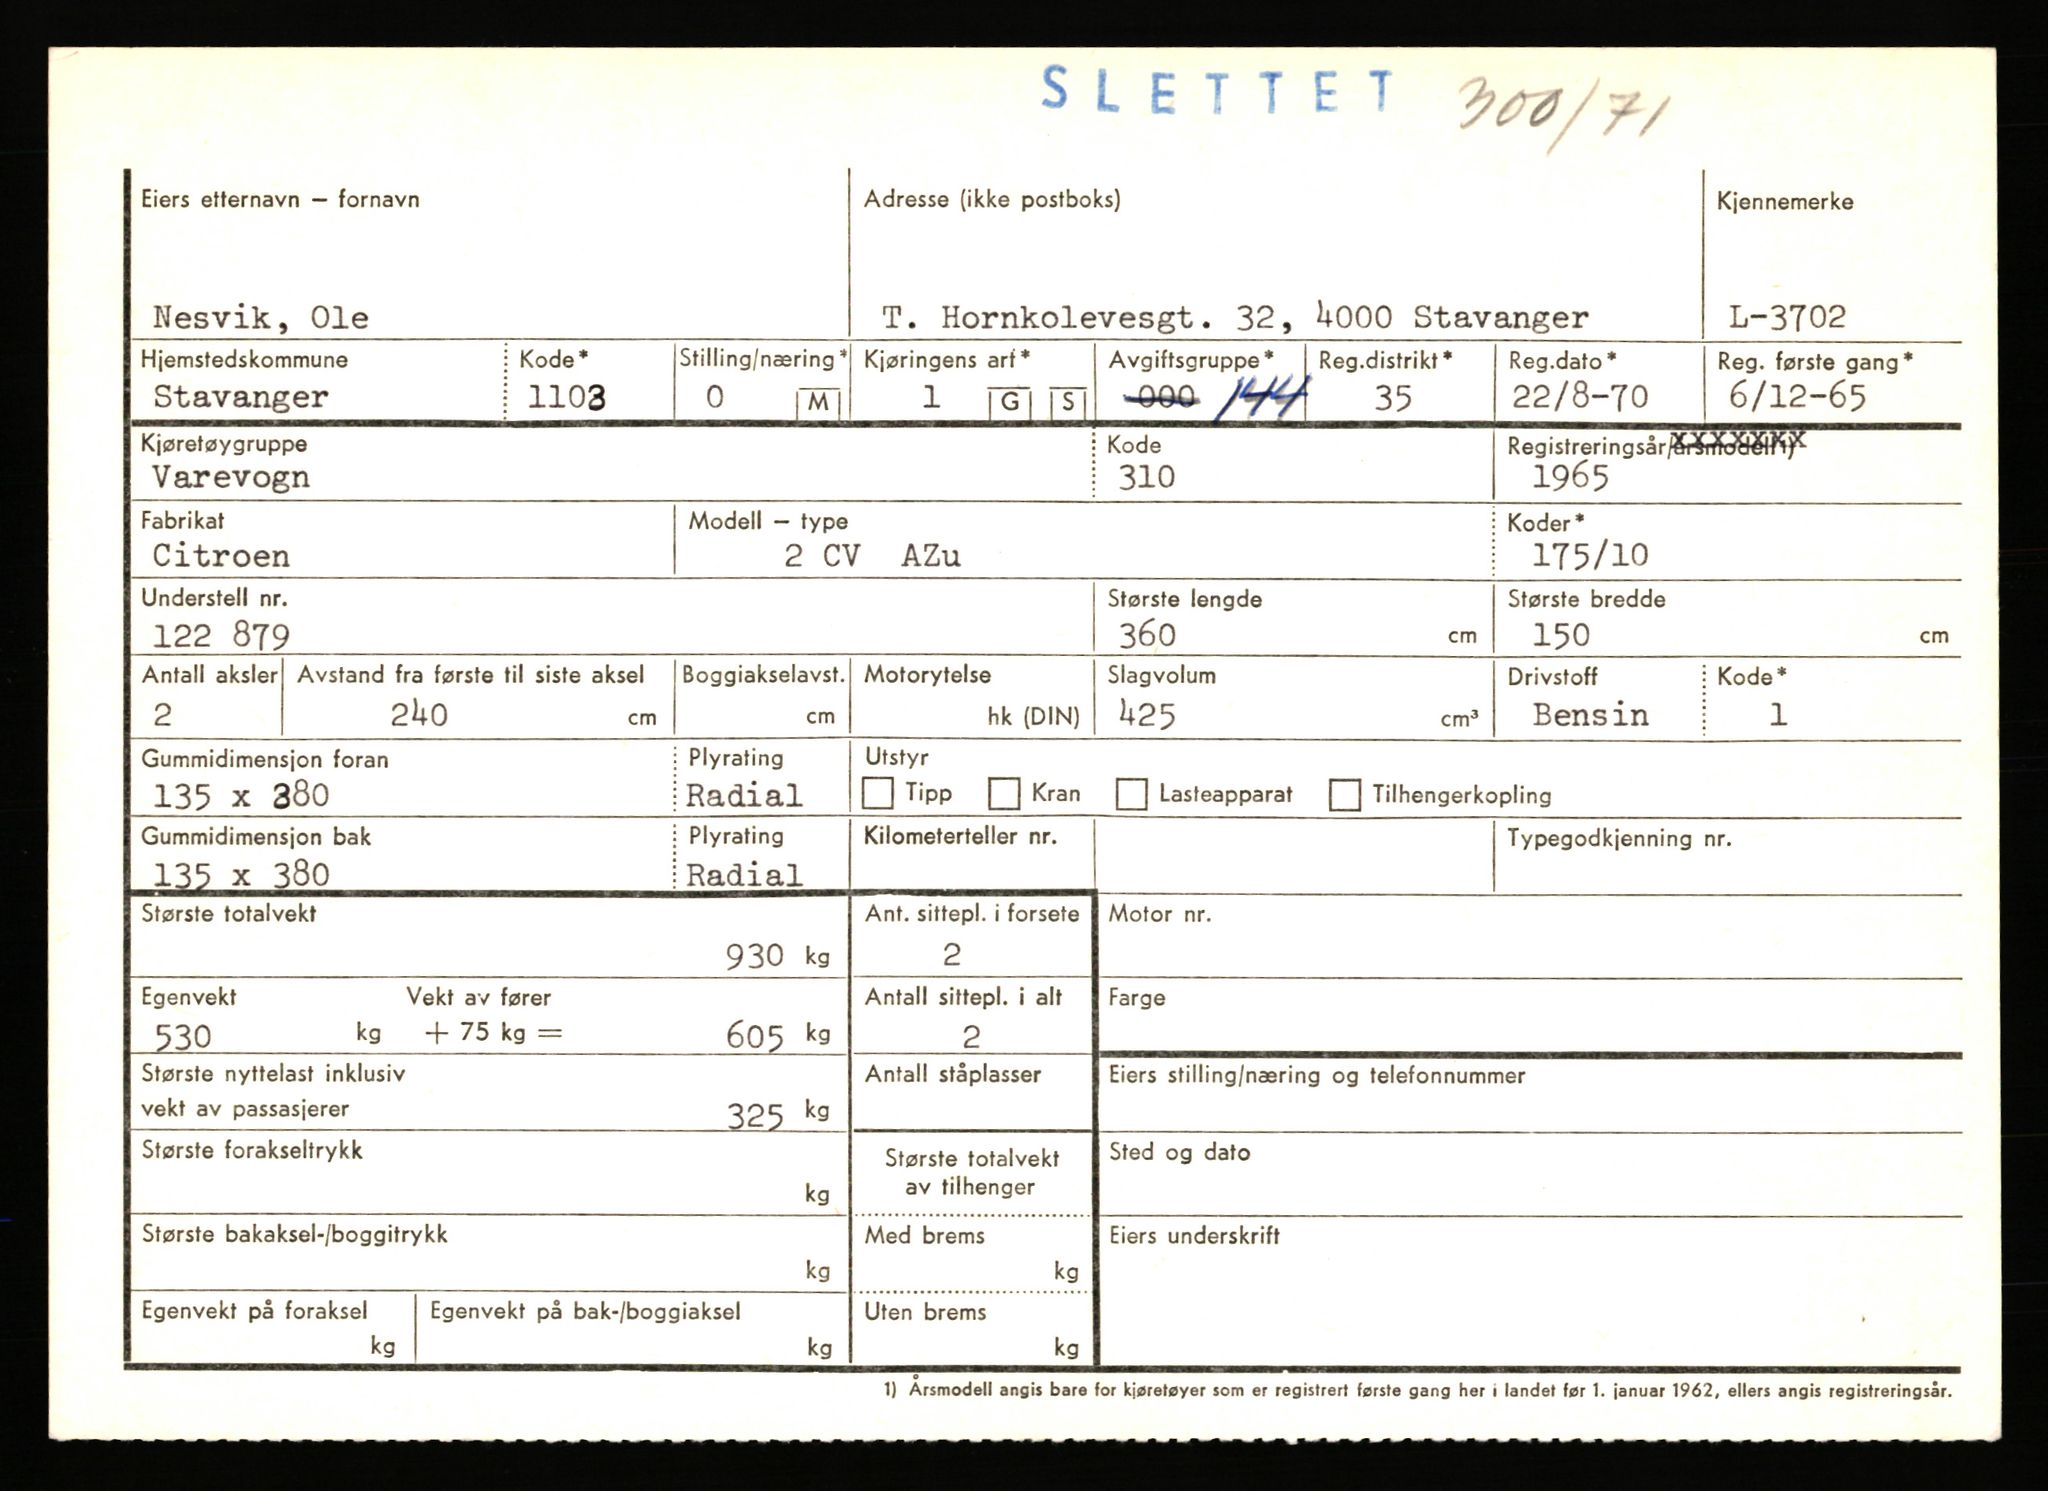 SLETTET 300/71
Eiers etternavn – fornavn Adresse (ikke postboks) Kjennemerke
Nesvik, Ole T. Hornkolevesgt. 32, 4000 Stavanger L-3702
Hjemstedskommune Kode* Stilling/næring* Kjøringens art* Avgiftsgruppe* Reg.distrikt* Reg.dato* Reg. første gang*
Stavanger 1103 0 M 1 G S 000 144 35 22/8-70 6/12-65
Kjøretøygruppe Kode Registreringsår/årsmodell1)
Varevogn 310 1965
Fabrikat Modell – type Koder*
Citroen 2 CV AZu 175/10
Understell nr. Største lengde Største bredde
122 879 360 cm 150 cm
Antall aksler Avstand fra første til siste aksel Boggiakselavst. Motorytelse Slagvolum Drivstoff Kode*
2 240 cm cm hk (DIN) 425 cm³ Bensin 1
Gummidimensjon foran Plyrating Utstyr
135 x 380 Radial Tipp Kran Lasteapparat Tilhengerkopling
Gummidimensjon bak Plyrating Kilometerteller nr. Typegodkjenning nr.
135 x 380 Radial
Største totalvekt Ant. sittepl. i forsete Motor nr.
930 kg 2
Egenvekt Vekt av fører Antall sittepl. i alt Farge
530 kg + 75 kg = 605 kg 2
Største nyttelast inklusiv Antall ståplasser Eiers stilling/næring og telefonnummer
vekt av passasjerer 325 kg
Største forakseltrykk Største totalvekt Sted og dato
kg av tilhenger
Største bakaksel-/boggitrykk Med brems Eiers underskrift
kg kg
Egenvekt på foraksel Egenvekt på bak-/boggiaksel Uten brems
kg kg kg
1) Årsmodell angis bare for kjøretøyer som er registrert første gang her i landet før 1. januar 1962, ellers angis registreringsår.